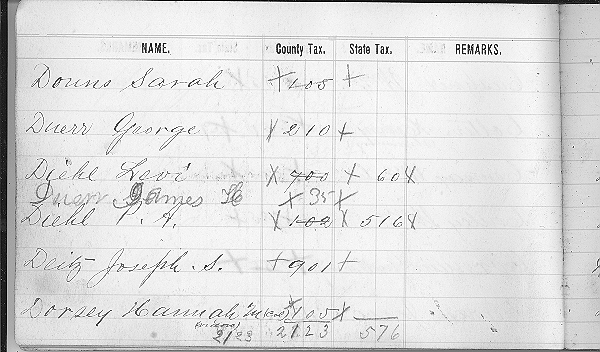 NAME. County Tax. State Tax. REMARKS.
Downs Sarah X 105 X
Duerr George X 210 X
Diehl Levi X 700 X 60 X
Duerr James H X 35 X
Diehl P. A. X 102 X 516 X
Deitz Joseph S. X 901 X
Dorsey Hannah X 105 X
(widow) 2123 2123 576